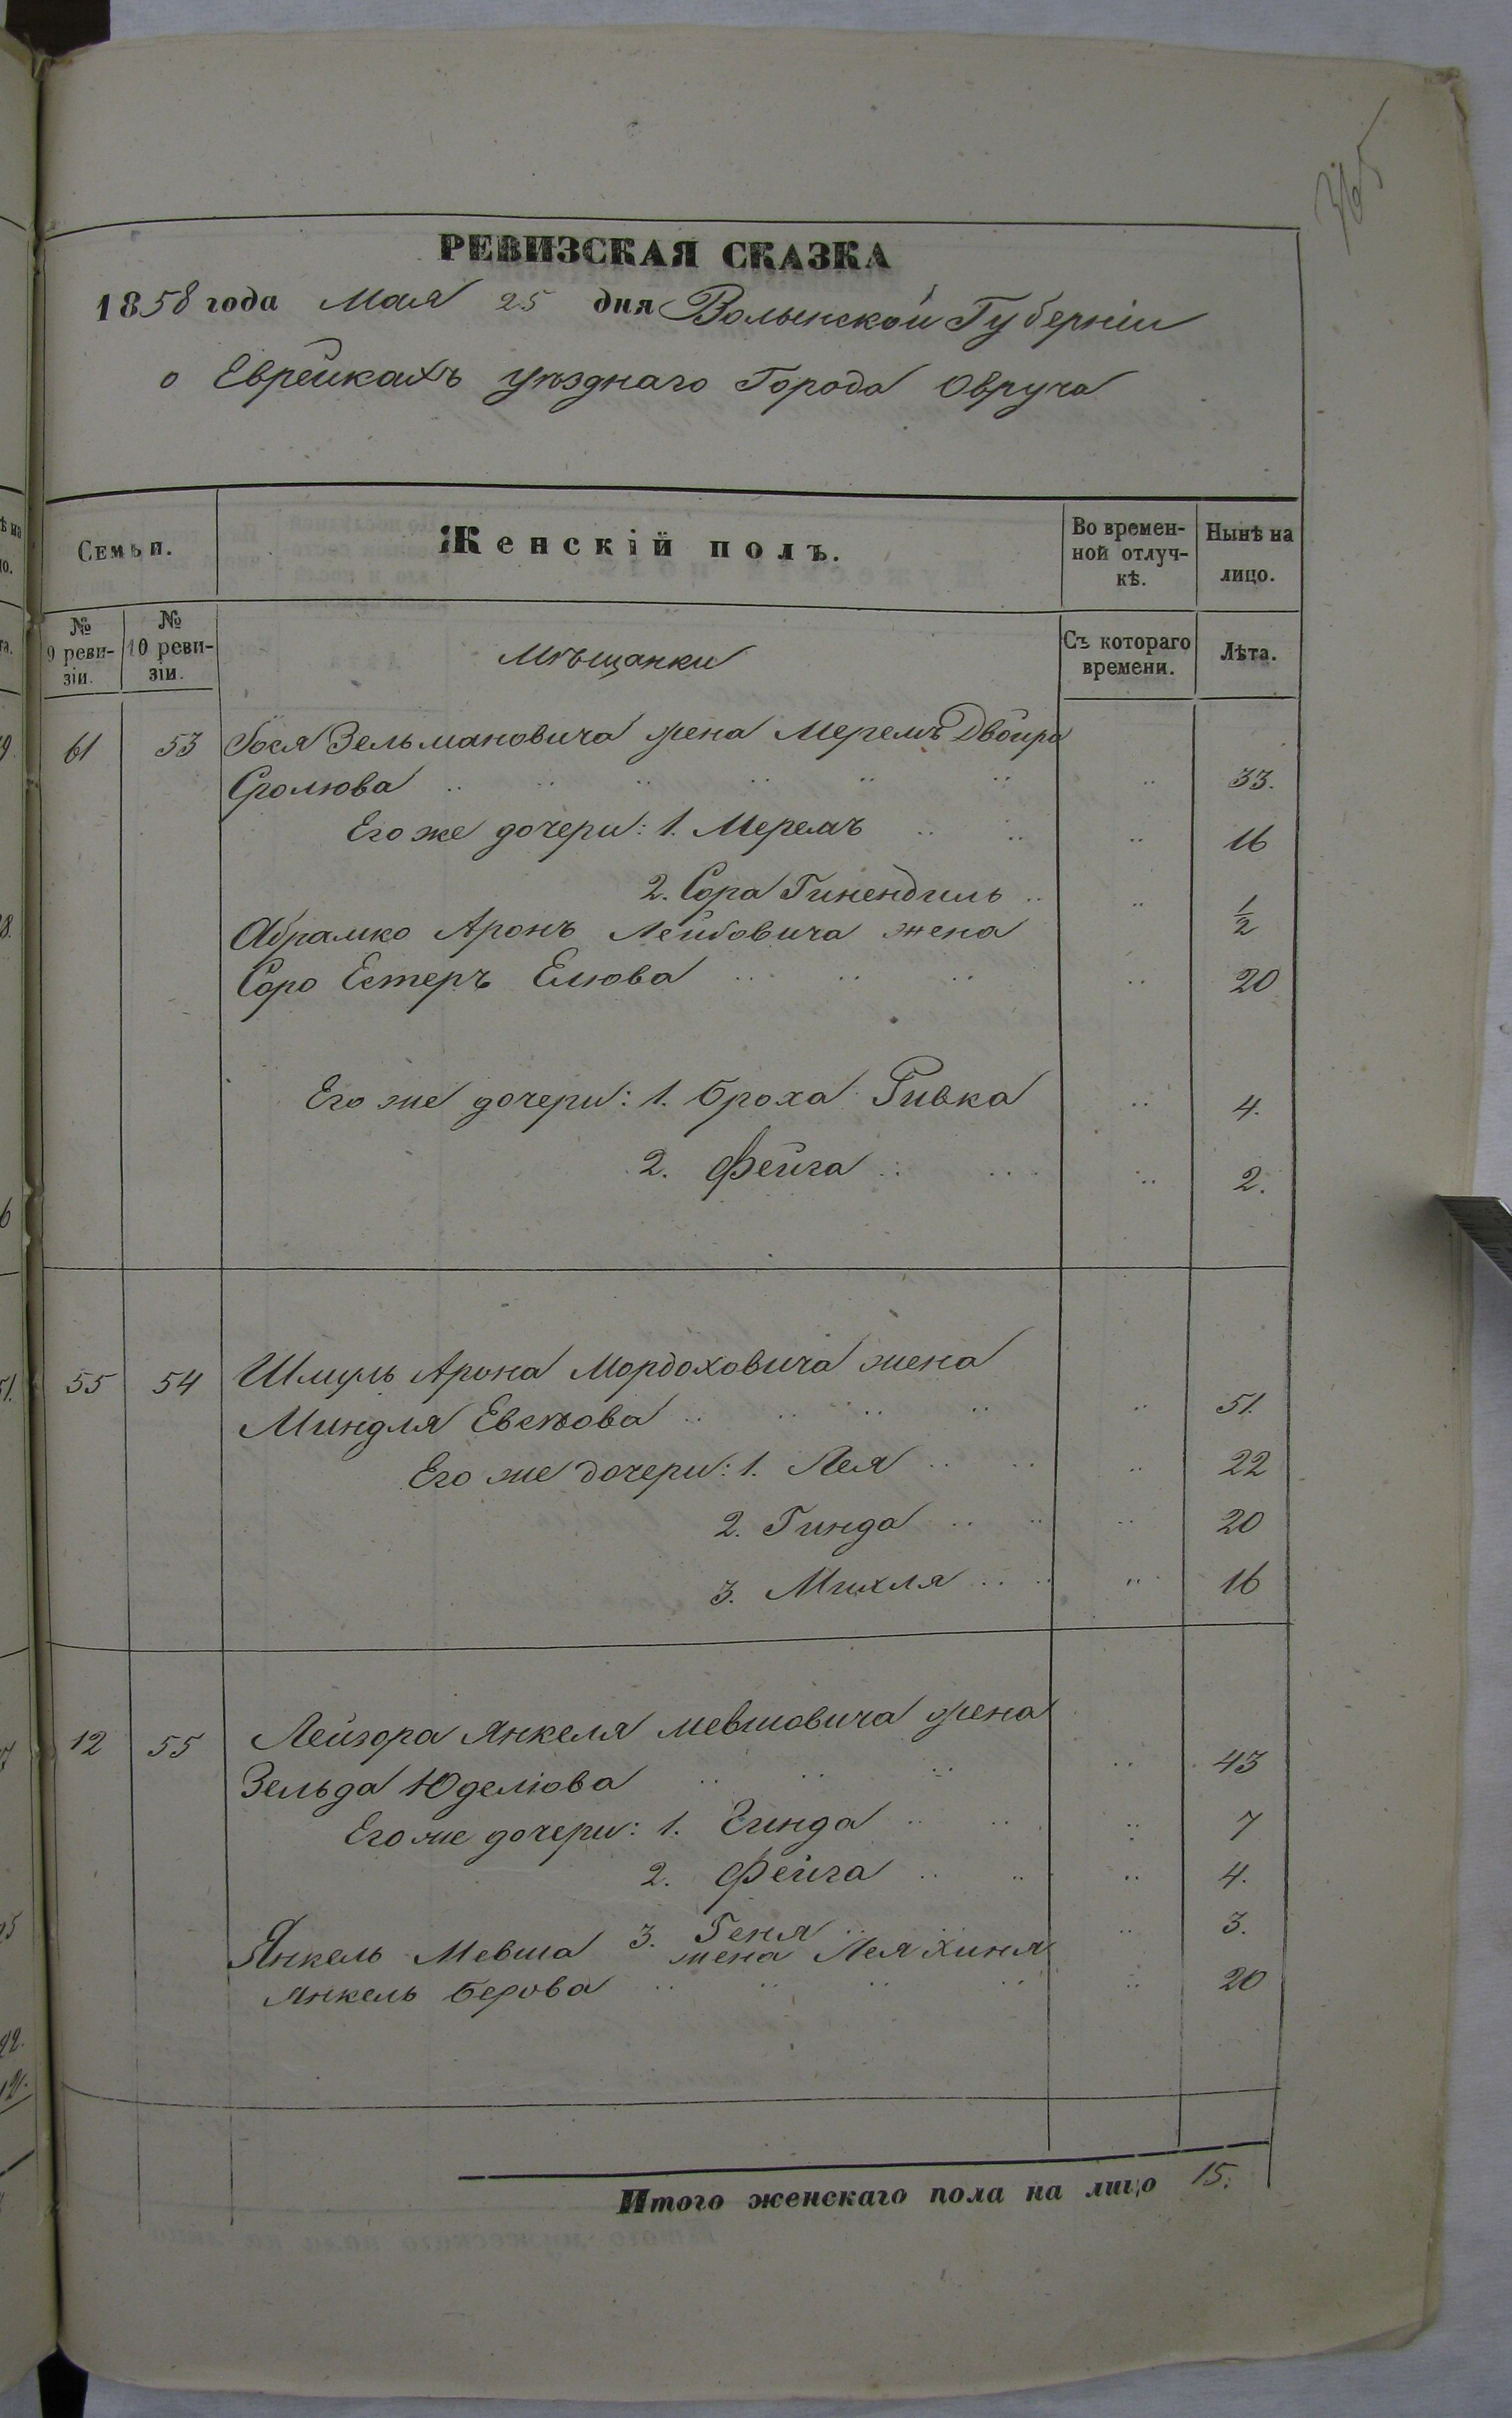 365
РЕВИЗСКАЯ СКАЗКА
1858 года Мая 25 дня Волынской Губерніи
о Еврейкахъ уѣзднаго Города Овруча
Семьи. Женскій полъ. Во времен-ной отлуч-кѣ. Нынѣ на лицо.
№ 9 реви-зіи. № 10 реви-зіи. Мѣщанки Съ котораго времени. Лѣта.
61 53 Іося Зельмановича жена Меремъ Двойра
Сролюва 33.
Его же дочери: 1. Меремъ 16
2. Сора Гинендиль 1/2
Абрамко Аронъ Лейбовича жена
Соро Естеръ Елюва 20
Его же дочери: 1. Броха Ривка 4.
2. Фейга 2.
55 54 Шмуль Арона Мордоховича жена
Миндля 51.
Его же дочери: 1. Лея 22
2. Гинда 20
3. Михля 16
12 55 Лейзора Янкеля Мевшовича жена
Зельда Юделіова 43
Его же дочери: 1. Гинда 7
2. Фейга 4.
3. Геня 3.
Янкель Мевша жена Лея Хиня
Янкель Берова 20
Итого женскаго пола на лицо 15.